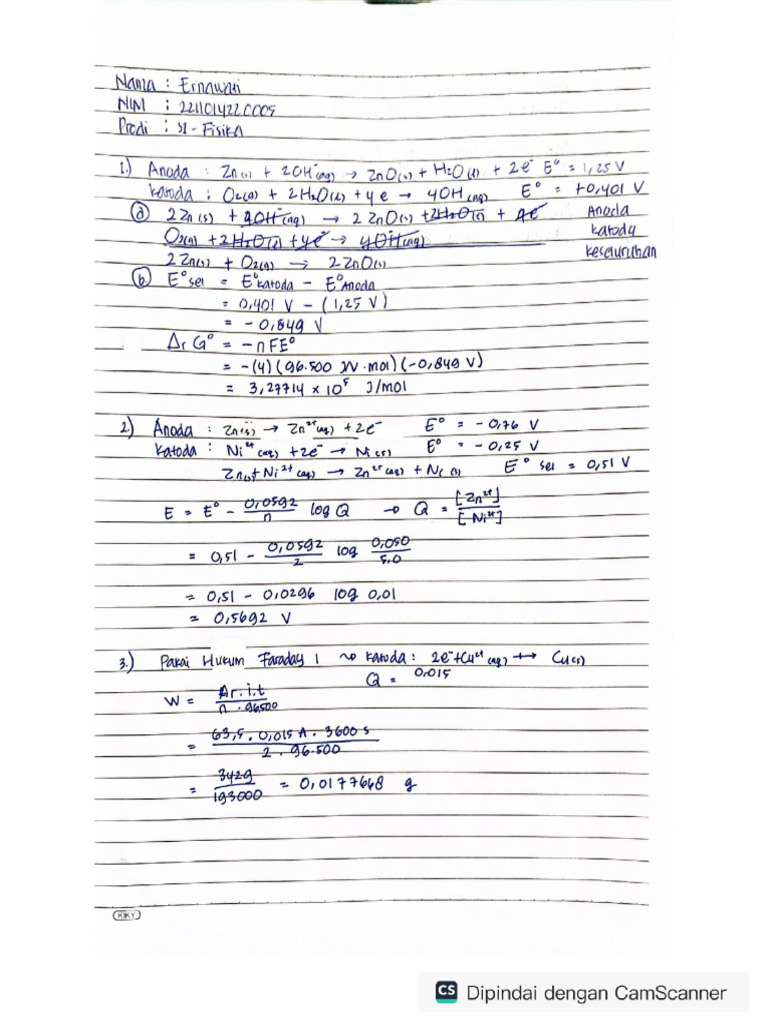 Nama : Ernawati
NIM : 2211014220005
Prodi : S1 - Fisika
1.) Anoda : Zn(s) + 2OH⁻(aq) → ZnO(s) + H₂O(l) + 2e⁻ E° = 1,25 V
Katoda : O₂(g) + 2H₂O(l) + 4e → 4OH⁻(aq) E° = +0,401 V
(a) 2 Zn(s) + 4OH⁻(aq) → 2 ZnO(s) + 2H₂O(l) + 4e⁻ Anoda
O₂(g) + 2H₂O(l) + 4e⁻ → 4OH⁻(aq) katoda
2 Zn(s) + O₂(g) → 2 ZnO(s) keseluruhan
(b) E° sel = E°katoda - E°Anoda
= 0,401 V - (1,25 V)
= - 0,849 V
ΔrG° = -nFE°
= -(4)(96.500 J/V·mol)(-0,849 V)
= 3,27714 × 10⁵ J/mol
2) Anoda : Zn(s) → Zn²⁺(aq) + 2e⁻ E° = - 0,76 V
Katoda : Ni²⁺(aq) + 2e⁻ → Ni(s) E° = - 0,25 V
Zn(s) + Ni²⁺(aq) → Zn²⁺(aq) + Ni(s) E° sel = 0,51 V
E = E° - 0,0592/n log Q → Q = [Zn²⁺]/[Ni²⁺]
= 0,51 - 0,0592/2 log 0,050/5,0
= 0,51 - 0,0296 log 0,01
= 0,5692 V
3.) Pakai Hukum Faraday 1 ~> katoda : 2e⁻ + Cu²⁺(aq) → Cu(s)
Q = 0,015
W = Ar.i.t/n . 96500
= 63,5 . 0,015 A . 3600 s/2 . 96.500
= 3429/193000 = 0,0177668 g
KIKY
CS Dipindai dengan CamScanner